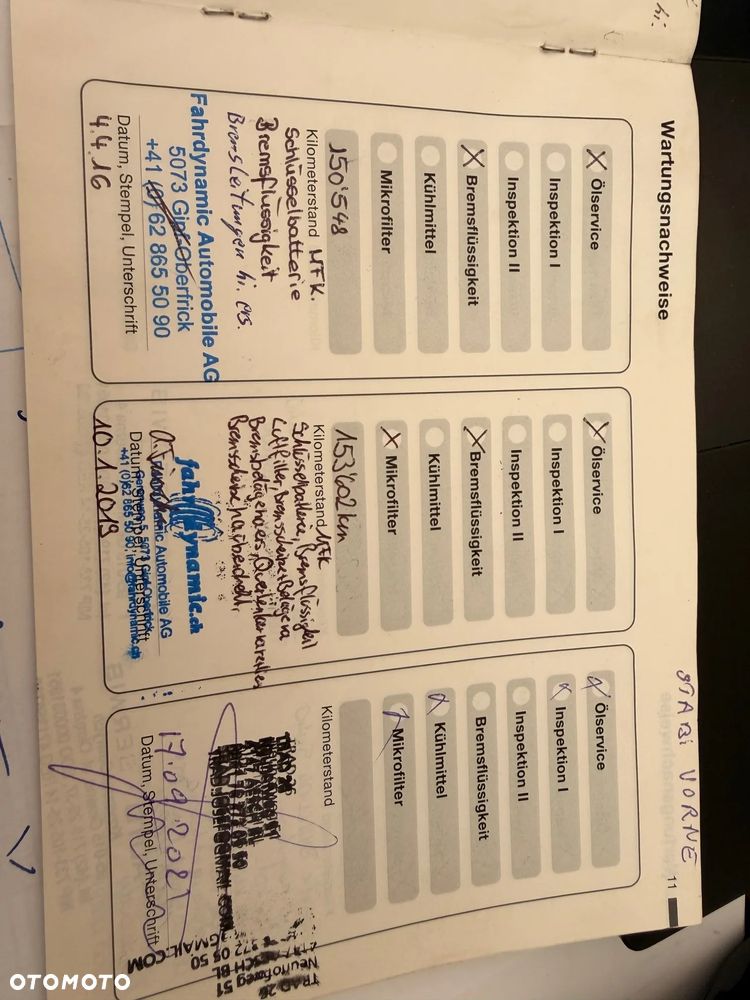 Wartungsnachweise
Ölservice
Inspektion I
Inspektion II
Bremsflüssigkeit
Kühlmittel
Mikrofilter
150'548
Kilometerstand MFK.
Schlüsselbatterie
Bremsflüssigkeit
Bremsleitungen hi. ers.
Fahrdynamic Automobile AG
5073 Gipf-Oberfrick
+41 (0) 62 865 50 90
Datum, Stempel, Unterschrift
4.4.16
Ölservice
Inspektion I
Inspektion II
Bremsflüssigkeit
Kühlmittel
Mikrofilter
153'602 km
Kilometerstand MFK
Schlüsselbatterie, Bremsflüssigkeit
Luftfilter, Bremsscheibe+Beläge va
fahrdynamic.ch
Automobile AG
5073 Gipf-Oberfrick
+41 (0)62 865 50 90,
Datum, Stempel, Unterschrift
10.1.2019
STABI VORNE
Ölservice
Inspektion I
Inspektion II
Bremsflüssigkeit
Kühlmittel
Mikrofilter
Kilometerstand
17.09.2021
Datum, Stempel, Unterschrift
TRAD 26
Neuhofweg 51
CH BL
GMAIL.COM
11
hi.
OTOMOTO